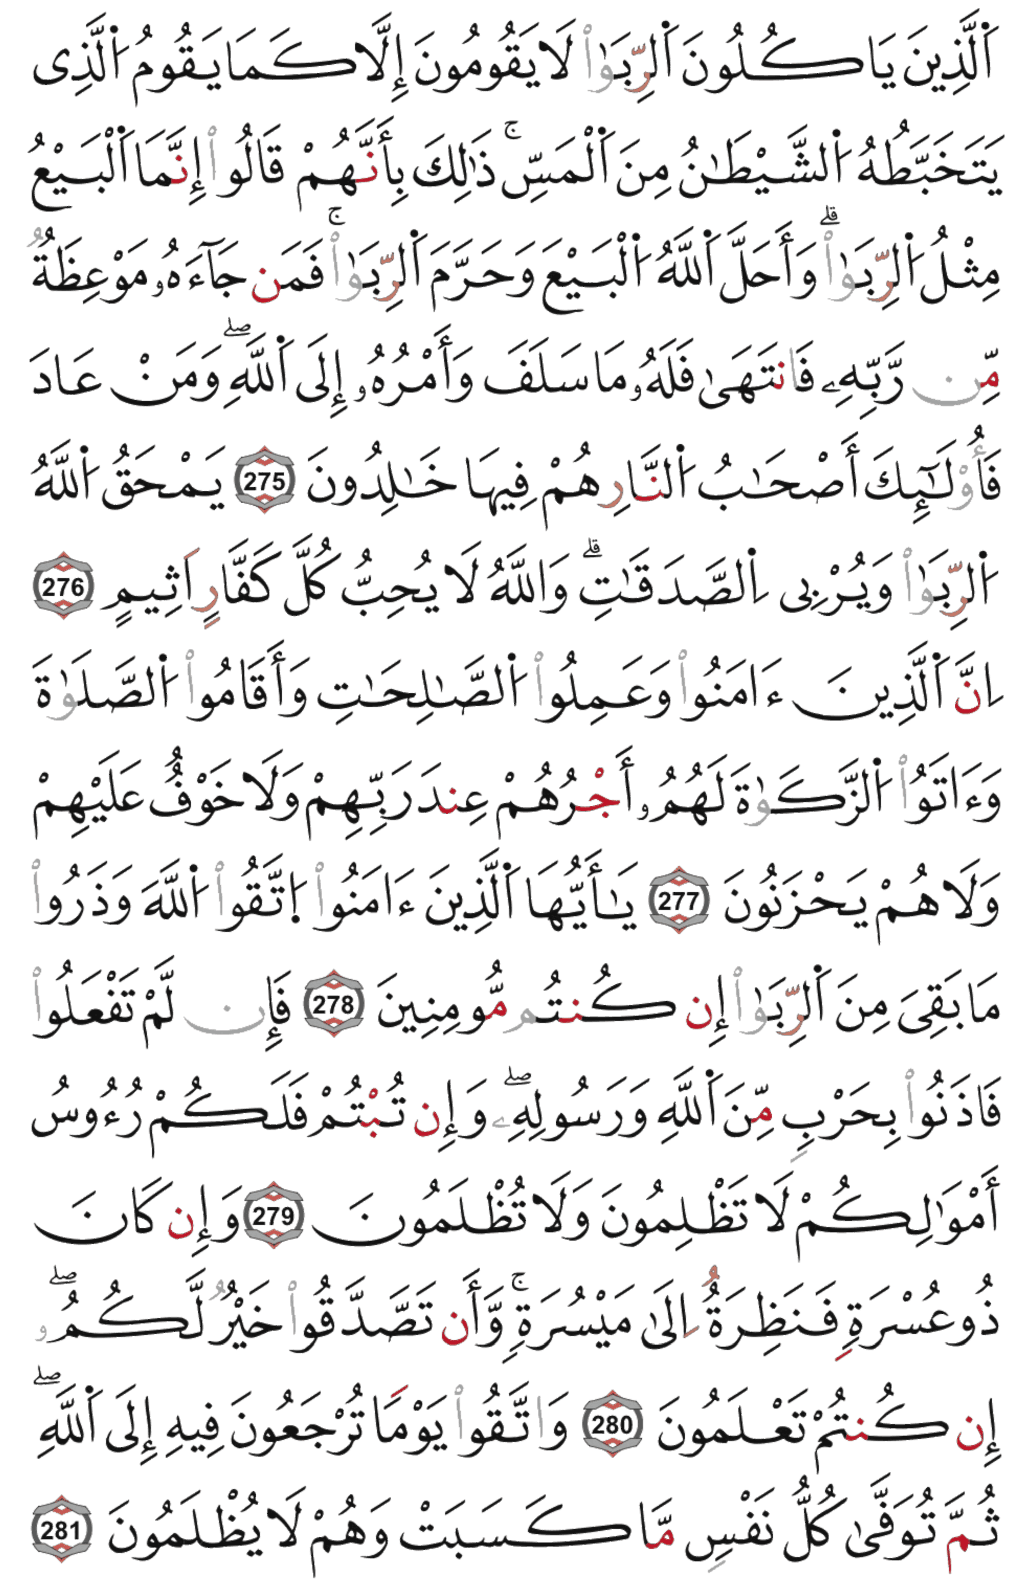 اَ۬لذِينَ يَاكُلُونَ اَ۬لرِّبَوٰاْ لَا يَقُومُونَ إِلَّا كَمَا يَقُومُ اُ۬لذِى
يَتَخَبَّطُهُ اُ۬لشَّيْطَٰنُ مِنَ اَ۬لْمَسِّ ۚ ذَٰلِكَ بِأَنَّهُمْ قَالُواْ إِنَّمَا اَ۬لْبَيْعُ
مِثْلُ اُ۬لرِّبَوٰاْ ۗ وَأَحَلَّ اَ۬للَّهُ اُ۬لْبَيْعَ وَحَرَّمَ اَ۬لرِّبَوٰاْ ۚ فَمَن جَآءَهُۥ مَوْعِظَةٌ
مِّن رَّبِّهِۦ فَانتَهَىٰ فَلَهُۥ مَا سَلَفَ وَأَمْرُهُۥ إِلَى اَ۬للَّهِ ۖ وَمَنْ عَادَ
فَأُوْلَٰٓئِكَ أَصْحَٰبُ اُ۬لنَّارِ هُمْ فِيهَا خَٰلِدُونَ 275 يَمْحَقُ اُ۬للَّهُ
اُ۬لرِّبَوٰاْ وَيُرْبِى اِ۬لصَّدَقَٰتِ ۗ وَاللَّهُ لَا يُحِبُّ كُلَّ كَفَّارٍ اَثِيمٍ 276
اِنَّ اَ۬لذِينَ ءَامَنُواْ وَعَمِلُواْ اُ۬لصَّٰلِحَٰتِ وَأَقَامُواْ اُ۬لصَّلَوٰةَ
وَءَاتَوُاْ اُ۬لزَّكَوٰةَ لَهُمُۥ أَجْرُهُمْ عِندَ رَبِّهِمْ وَلَا خَوْفٌ عَلَيْهِمْ
وَلَا هُمْ يَحْزَنُونَ 277 يَٰأَيُّهَا اَ۬لذِينَ ءَامَنُواْ اُ۪تَّقُواْ اُ۬للَّهَ وَذَرُواْ
مَا بَقِىَ مِنَ اَ۬لرِّبَوٰاْ إِن كُنتُم مُّومِنِينَ 278 فَإِن لَّمْ تَفْعَلُواْ
فَاذَنُواْ بِحَرْبٍ مِّنَ اَ۬للَّهِ وَرَسُولِهِۦ ۖ وَإِن تُبْتُمْ فَلَكُمْ رُءُوسُ
أَمْوَٰلِكُمْ لَا تَظْلِمُونَ وَلَا تُظْلَمُونَ 279 وَإِن كَانَ
ذُو عُسْرَةٍ فَنَظِرَةٌ اِلَىٰ مَيْسُرَةٍ ۚ وَأَن تَصَّدَّقُواْ خَيْرٌ لَّكُمُۥ ۖ
إِن كُنتُمْ تَعْلَمُونَ 280 وَاتَّقُواْ يَوْمًا تُرْجَعُونَ فِيهِ إِلَى اَ۬للَّهِ ۖ
ثُمَّ تُوَفَّىٰ كُلُّ نَفْسٍ مَّا كَسَبَتْ وَهُمْ لَا يُظْلَمُونَ 281